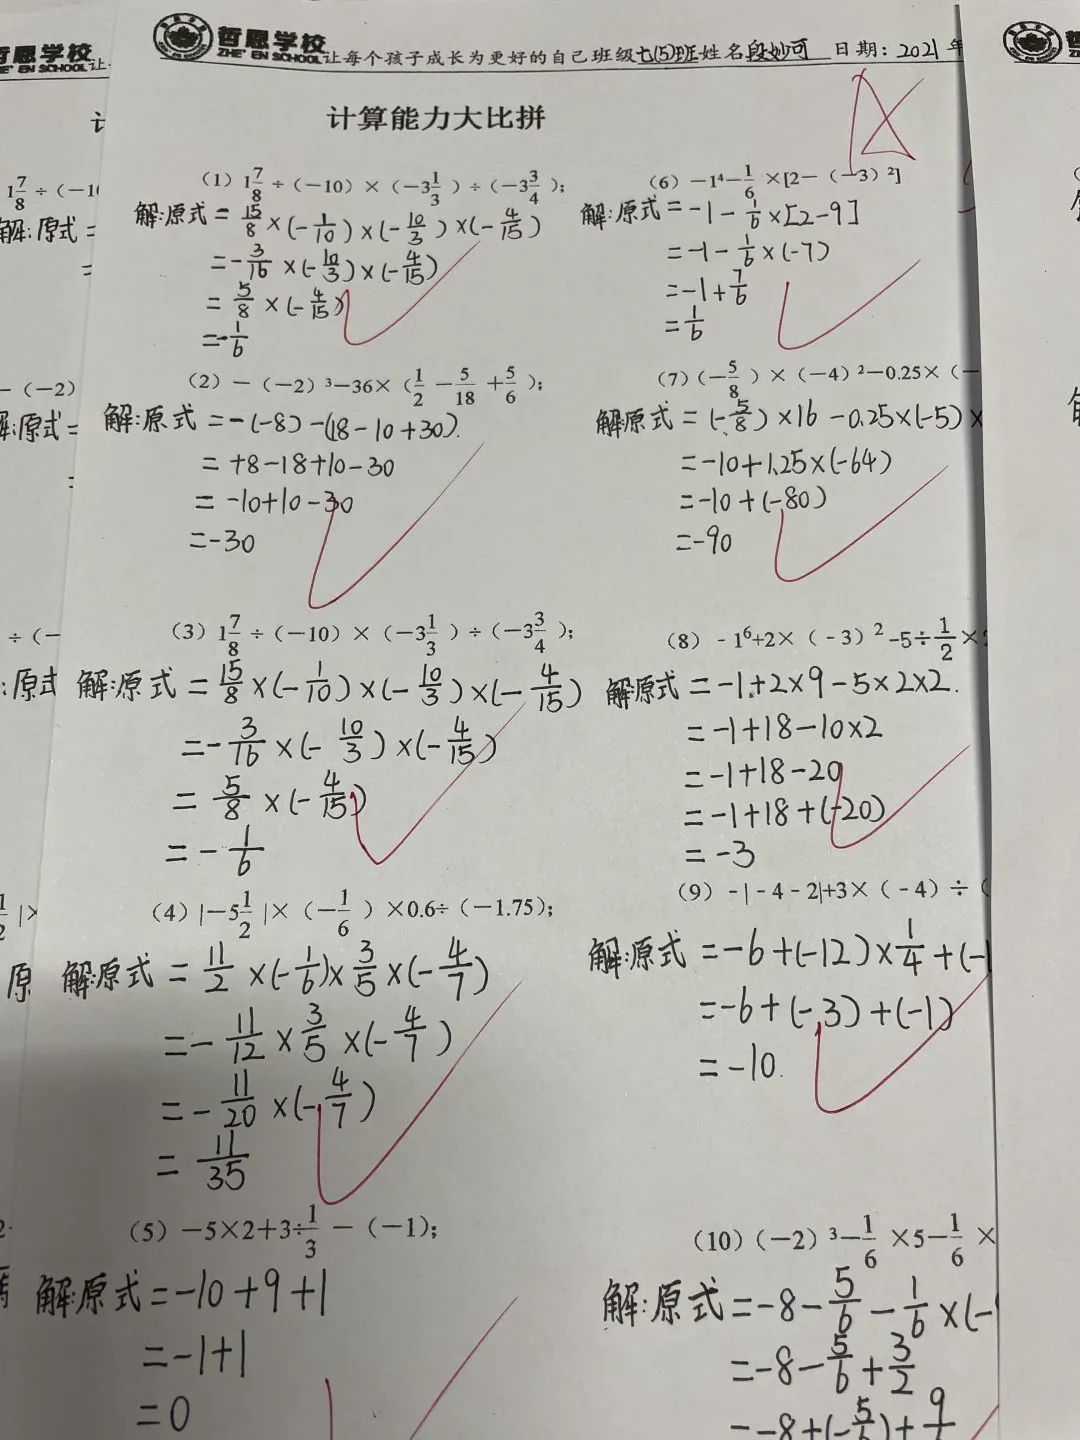 哲恩学校
ZHE' EN SCHOOL 让每个孩子成长为更好的自己 班级七(5)班姓名段妙可 日期：2021 年
计算能力大比拼
(1) 1 7/8 ÷ (−10) × (−3 1/3) ÷ (−3 3/4);
解:原式 = 15/8 × (− 1/10) × (− 10/3) × (− 4/15)
= − 3/16 × (− 10/3) × (− 4/15)
= 5/8 × (− 4/15)
= − 1/6
(2) − (−2) ³ −36× (1/2 − 5/18 + 5/6);
解:原式 = −(−8) −(18 − 10 + 30).
= +8−18+10−30
= −10+10−30
= −30
(3) 1 7/8 ÷ (−10) × (−3 1/3) ÷ (−3 3/4);
解:原式 = 15/8 × (− 1/10) × (− 10/3) × (− 4/15)
= − 3/16 × (− 10/3) × (− 4/15)
= 5/8 × (− 4/15)
= − 1/6
(4) |−5 1/2 |× (− 1/6) ×0.6÷ (−1.75);
解:原式 = 11/2 × (− 1/6) × 3/5 × (− 4/7)
= − 11/12 × 3/5 × (− 4/7)
= − 11/20 × (− 4/7)
= 11/35
(5) −5×2+3÷ 1/3 − (−1);
解:原式 = −10+9+1
= −1+1
= 0
(6) −1⁴− 1/6 ×[2− (−3) ²]
解:原式 = −1 − 1/6 ×[2−9]
= −1 − 1/6 × (−7)
= −1+ 7/6
= 1/6
(7) (− 5/8) × (−4) ²−0.25× (−
解:原式 = (− 5/8) ×16 − 0.25×(−5) ×
= −10+1.25×(−64)
= −10 + (−80)
= −90
(8) - 1⁶+2× ( - 3) ² -5÷ 1/2 ×
解:原式 = −1+2×9−5×2×2.
= −1+18−10×2
= −1+18−20
= −1+18+(−20)
= −3
(9) - | - 4 - 2|+3× ( - 4) ÷ (
解:原式 = −6+(−12)× 1/4 +(−1
= −6+(−3)+(−1)
= −10.
(10) (−2) ³− 1/6 ×5− 1/6 ×
解:原式 = −8− 5/6 − 1/6 ×(−
= −8− 5/6 + 3/2
= −8+(− 5/6)+ 9/